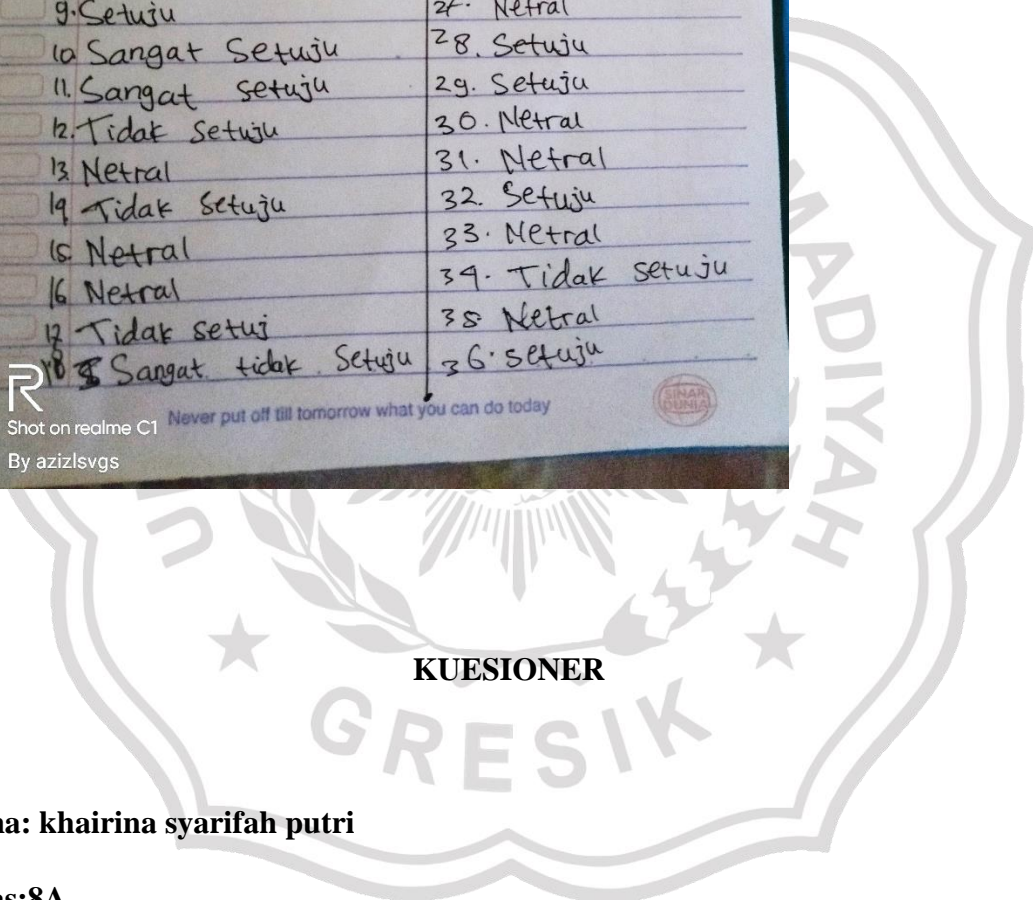 9. Setuju
10 Sangat Setuju
11. Sangat setuju
12. Tidak setuju
13 Netral
14 Tidak setuju
15 Netral
16 Netral
17 Tidak setuj
18 Sangat tidak Setuju
27. Netral
28. Setuju
29. Setuju
30. Netral
31. Netral
32. Setuju
33. Netral
34. Tidak setuju
35 Netral
36. setuju
Never put off till tomorrow what you can do today
SINAR
DUNIA
R
Shot on realme C1
By azizlsvgs
MADIYAH
GRESIK
KUESIONER
na: khairina syarifah putri
as:8A